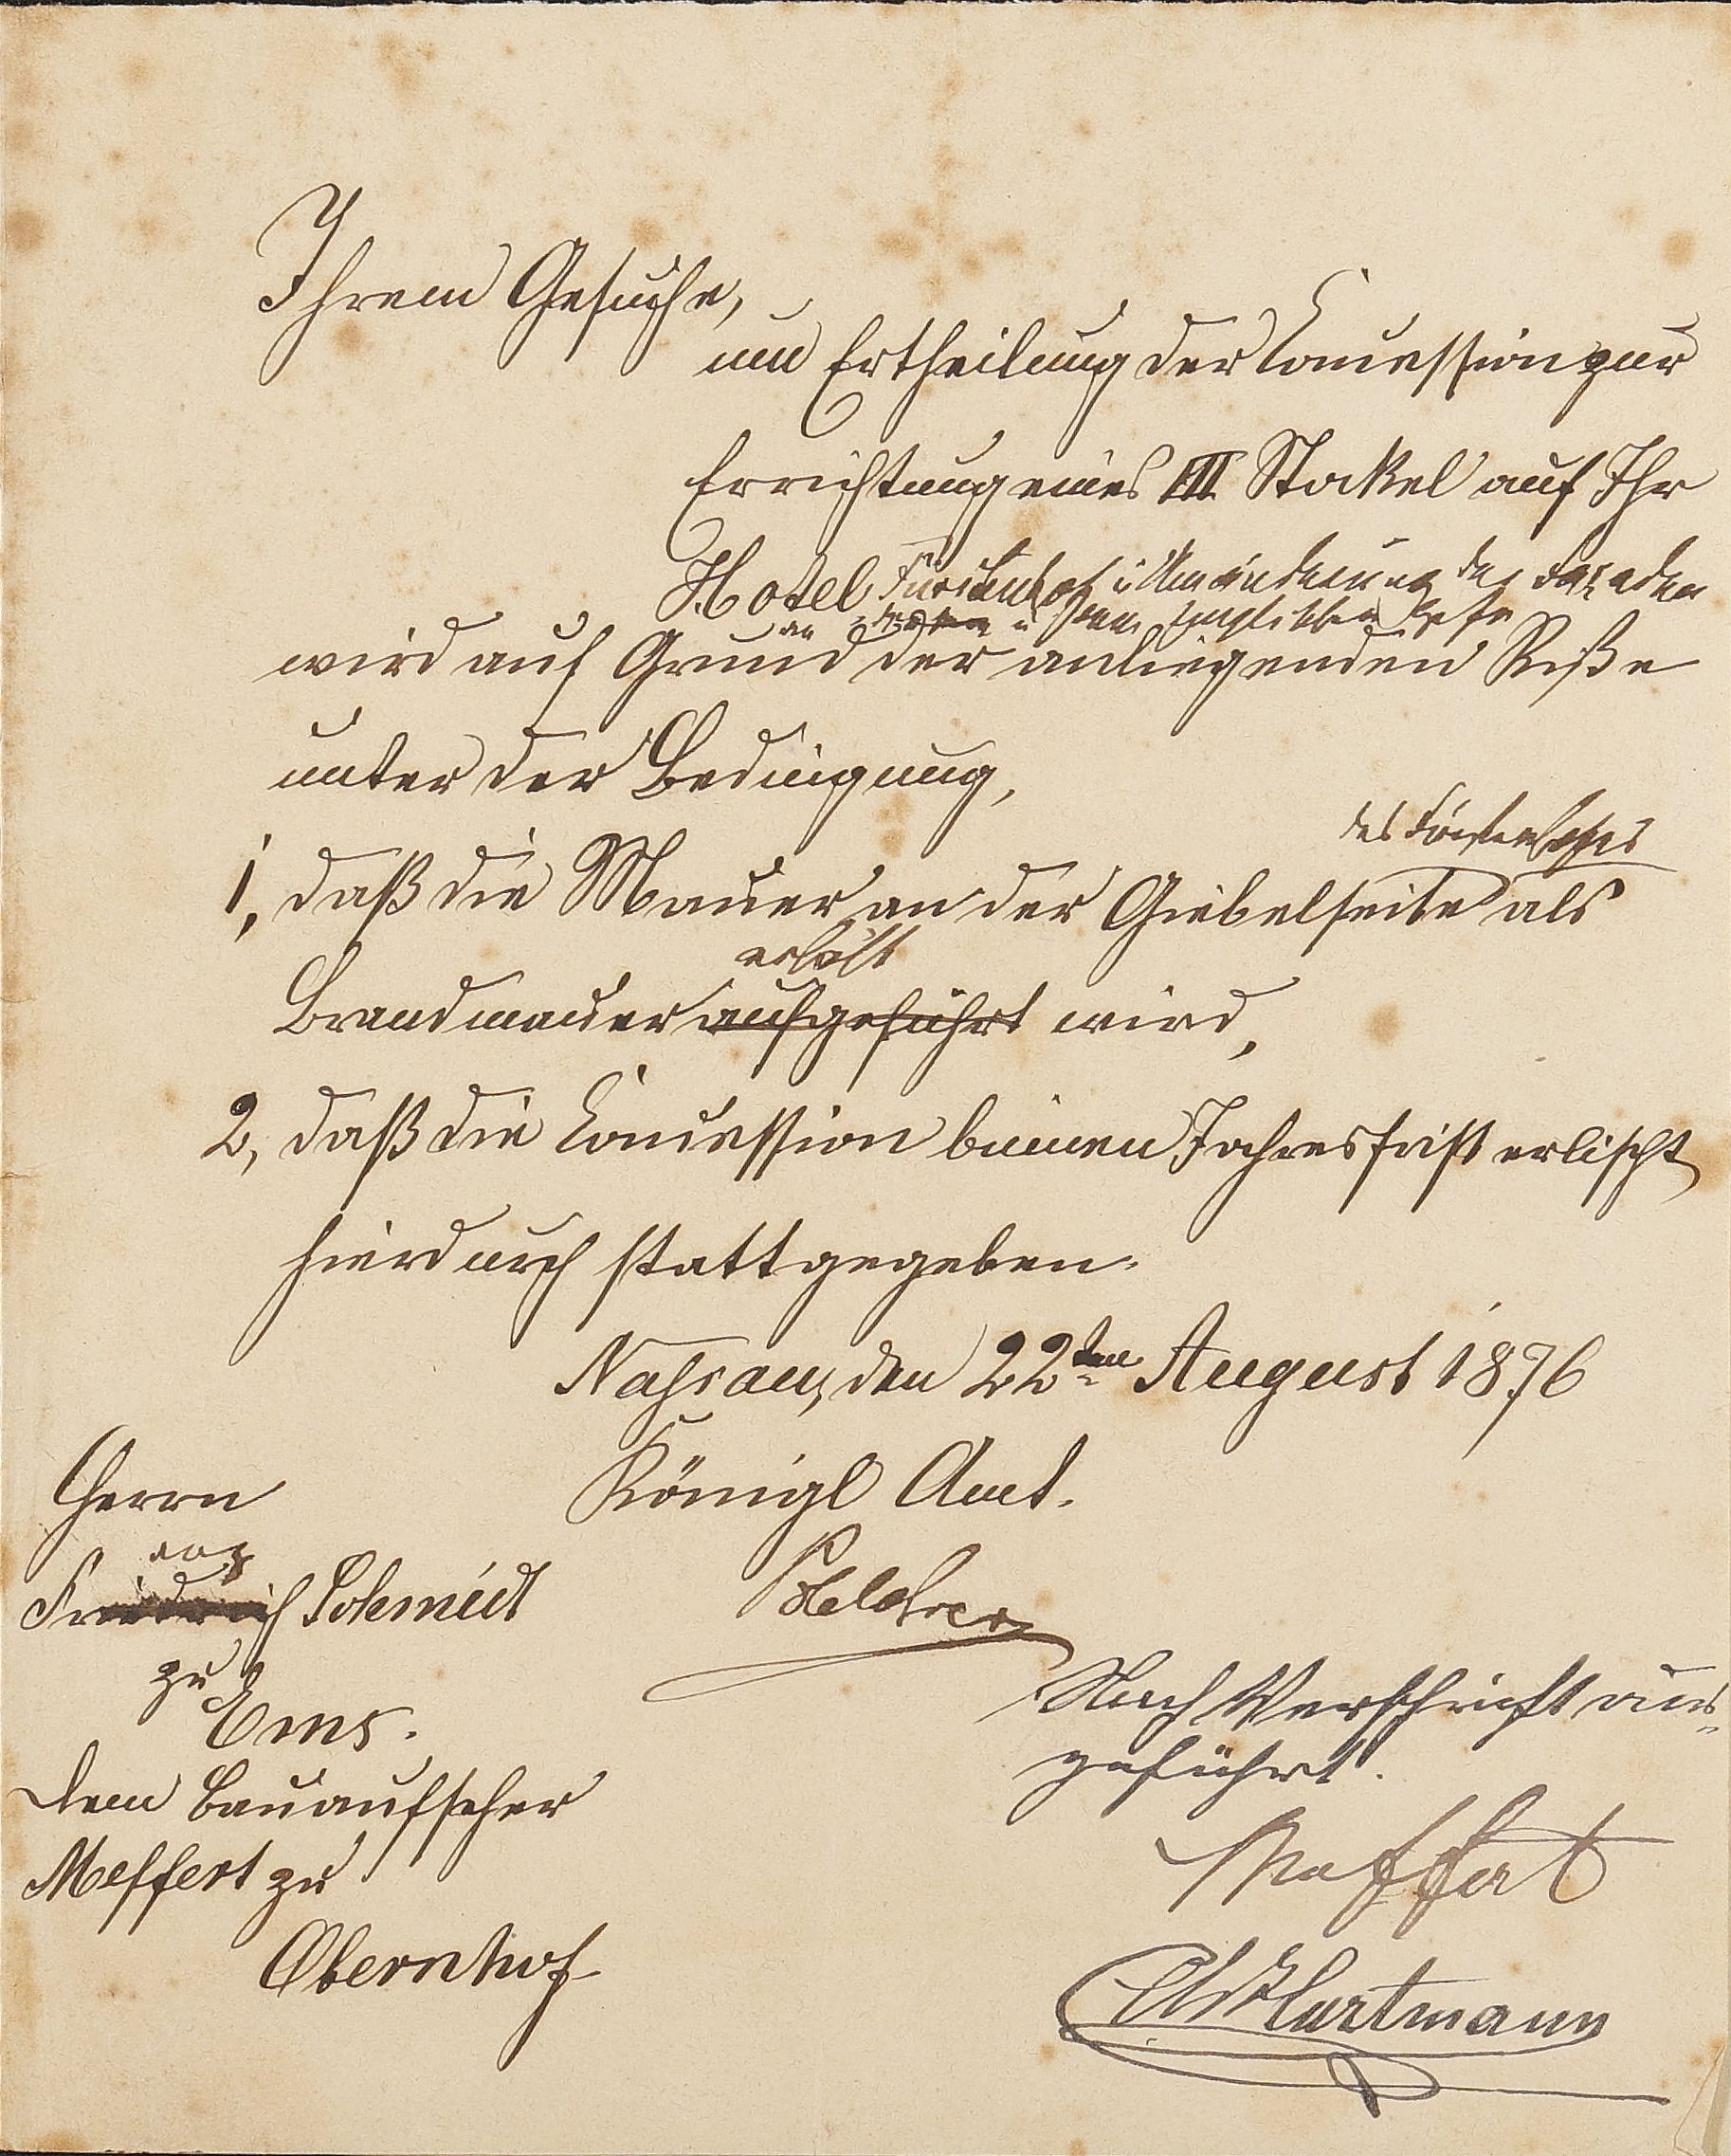 Ihrem Gesuche,
um Ertheilung der Concession zur
Errichtung eines III Stockel auf Ihr
Hotel Fürstenhof u Umänderung der Facaden
an u dem Englischen Hofe
wird auf Grund der anliegenden Riße
unter der Bedingung,
des Fürstenhofes
1, daß die Mauer an der Giebelseite als
erhöht
Brandmauer aufgeführt wird,
2, daß die Concession binnen Jahresfrist erlischt
hierdurch stattgegeben.
Nassau, den 22ten August 1876
Königl Amt.
Herrn
Schmidt
zu
Ems.
Nach Vorschrift aus-
geführt.
dem Bauaufseher
Meffert zu
Obernhof
Meffert
Hartmann